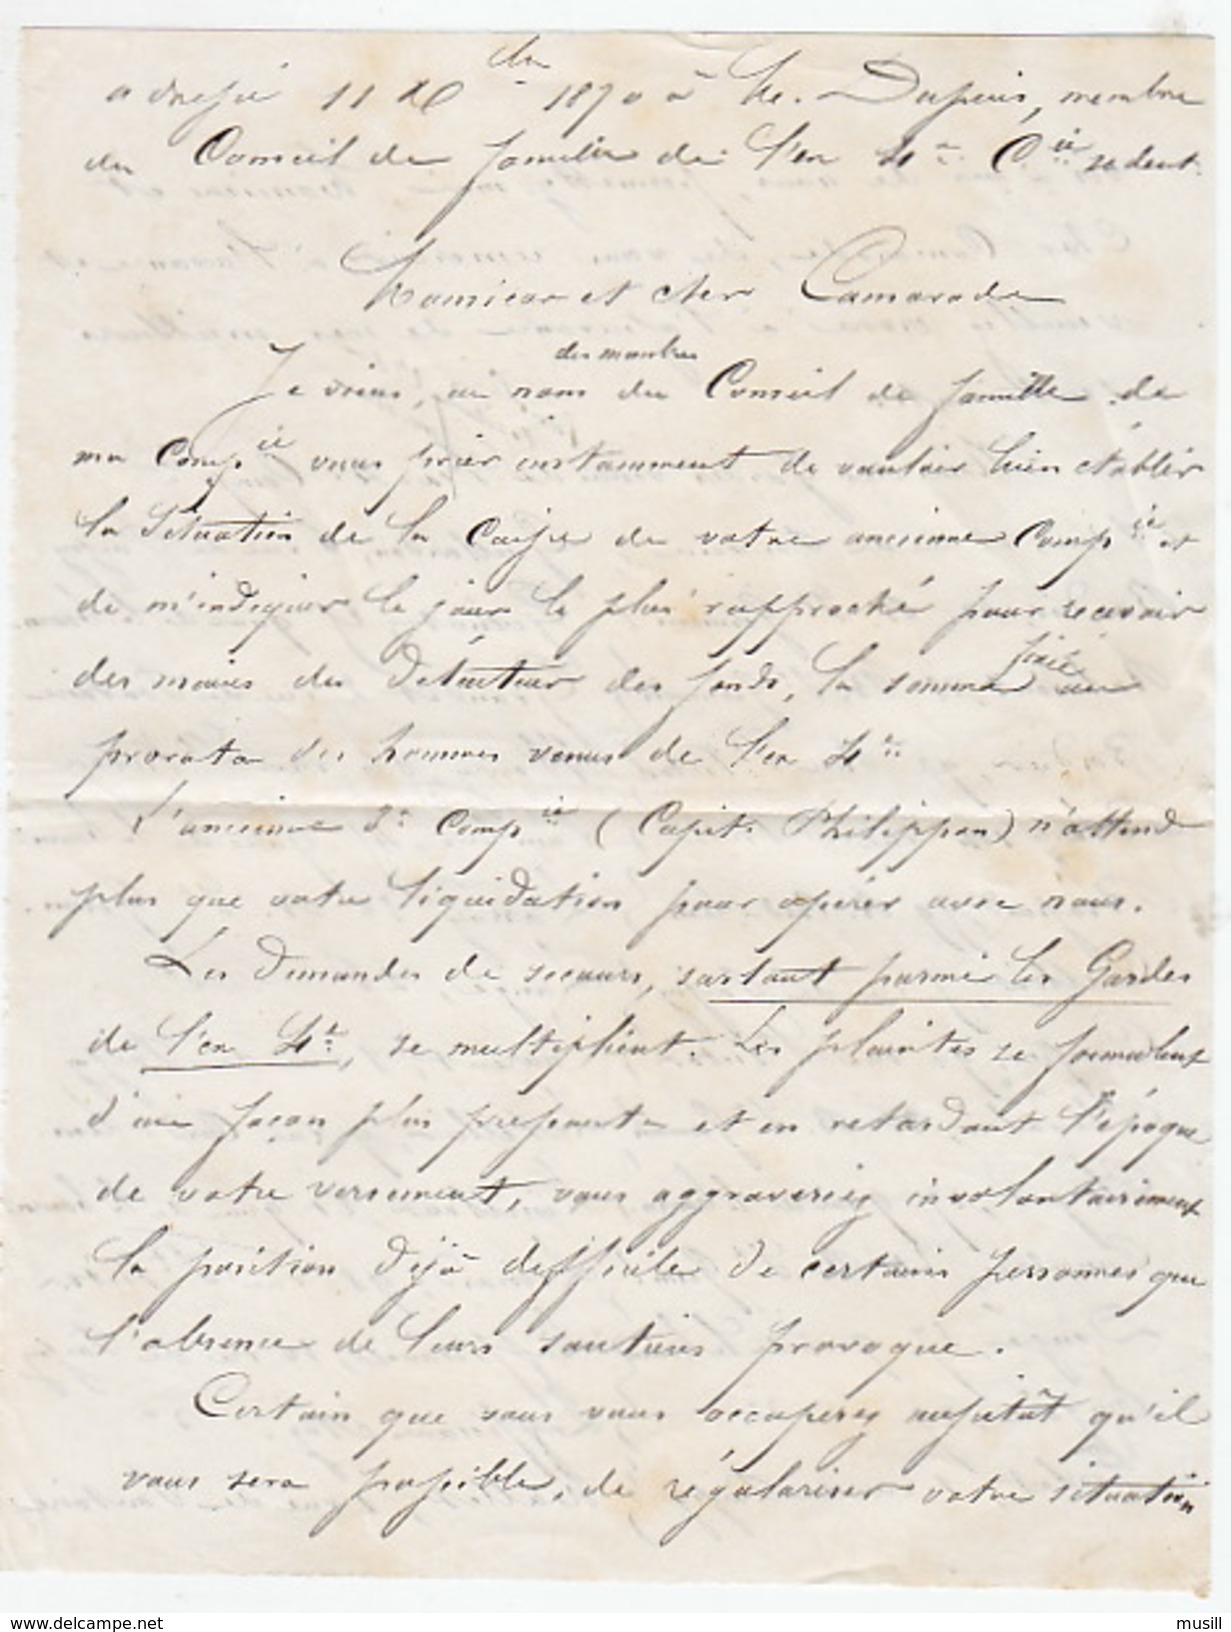 adressé 11 Xbre 1870 à Mr. Dupuis, membre
du Conseil de famille de l'en 4e Cie sedent.
Monsieur et cher Camarade
Je viens, au nom des membres du Conseil de famille de
ma Compie vous prier instamment de vouloir bien établir
la Situation de la Caisse de votre ancienne Compie et
de m'indiquer le jour le plus rapproché pour recevoir
des mains du Détenteur des fonds, la somme fixée au
prorata des hommes venus de l'en 4e
L'ancienne 3e Compie (Capit. Philippon) n'attend
plus que votre liquidation pour opérer avec nous.
Les Demandes de secours, sortant parmi les Gardes
de l'en 4e, se multiplient. Les plaintes se formulent
d'une façon plus pressante et en retardant l'époque
de votre versement, vous aggraveriez involontairement
la position déjà difficile de certaines personnes que
l'absence de leurs soutiens provoque.
Certain que vous vous occuperez aussitôt qu'il
vous sera possible, de régulariser votre situation
www.delcampe.net
musill